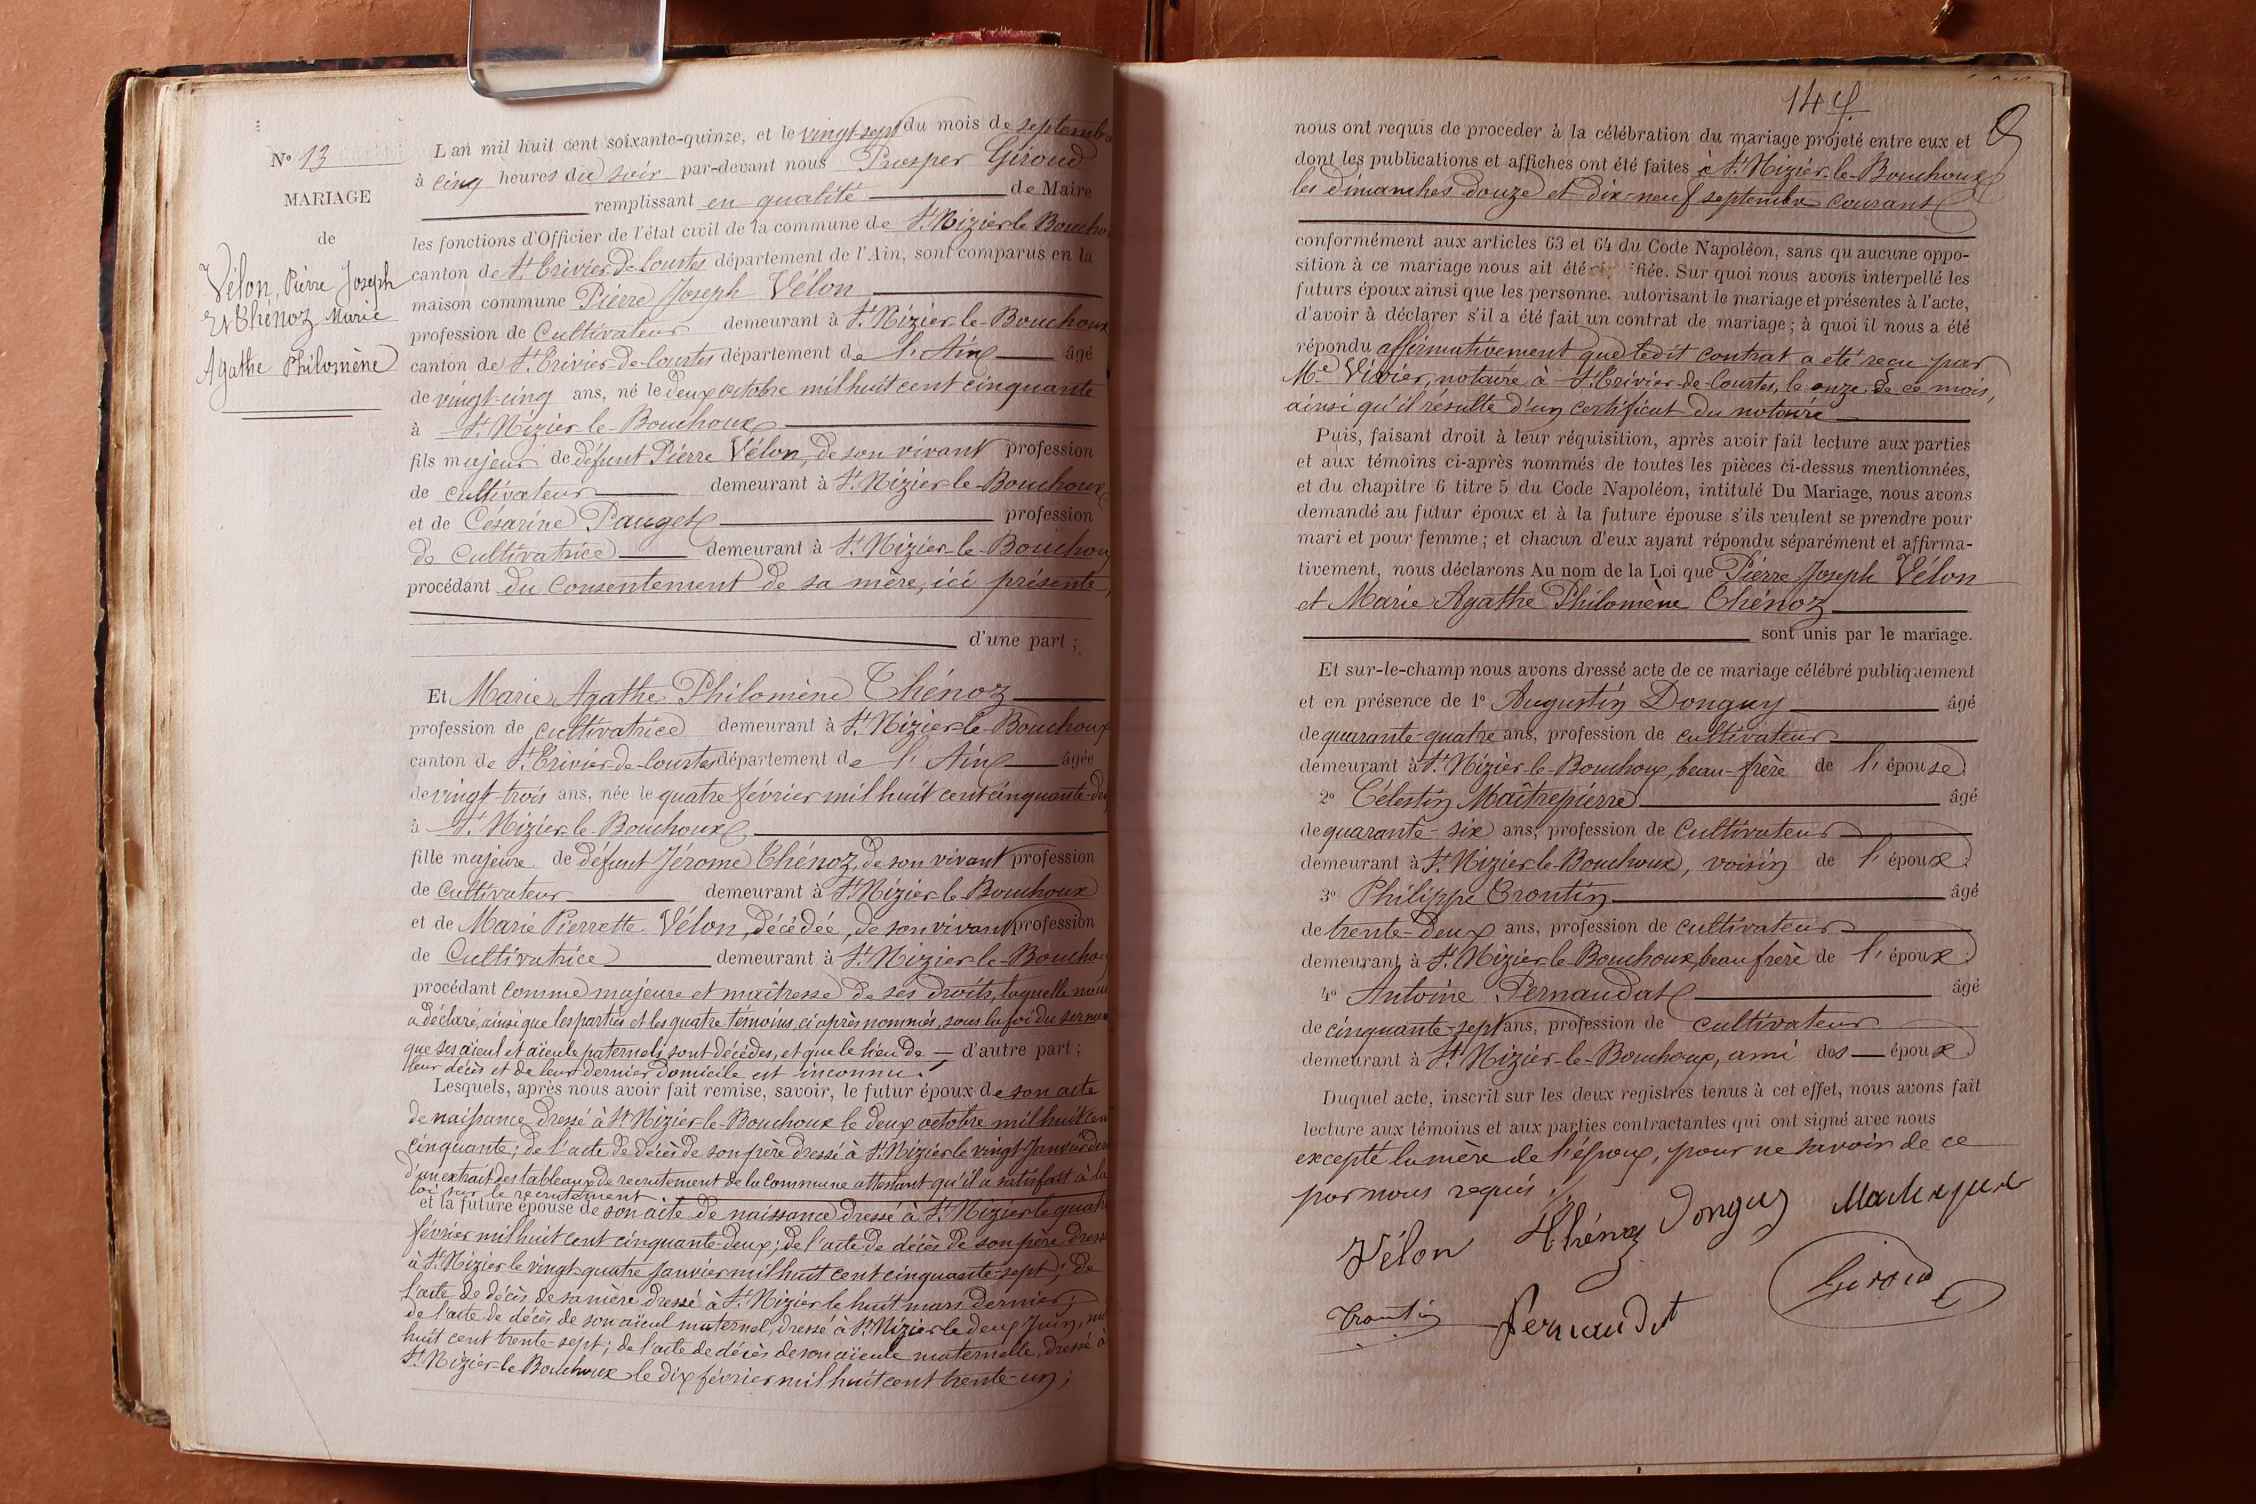 N° 13
MARIAGE
de
Vélon, Pierre Joseph
Et Thénoz Marie
Agathe Philomène
L'an mil huit cent soixante-quinze, et le vingt-sept du mois de septembre
à cinq heures du soir par-devant nous Prosper Giroud
remplissant en qualité de Maire
les fonctions d'Officier de l'état civil de la commune de St Nizier le Boucho
canton de St Trivier-de-Courtes département de l'Ain, sont comparus en la
maison commune Pierre Joseph Vélon
profession de Cultivateur demeurant à St Nizier-le-Bouchoux
canton de St Trivier-de-Courtes département de l'Ain âgé
de vingt-cinq ans, né le deux octobre mil huit cent cinquante
à St Nizier le Bouchoux
fils majeur de défunt Pierre Vélon, de son vivant profession
de cultivateur demeurant à St Nizier-le-Bouchoux
et de Césarine Pauget profession
de Cultivatrice demeurant à St Nizier-le-Bouchoux
procédant du consentement de sa mère, ici présente,
d'une part ;
Et Marie Agathe Philomène Thénoz
profession de cultivatrice demeurant à St Nizier-le-Bouchoux
canton de St Trivier-de-Courtes département de l'Ain âgée
de vingt-trois ans, née le quatre février mil huit cent cinquante-deux
à St Nizier-le-Bouchoux
fille majeure de défunt Jérome Thénoz, de son vivant profession
de cultivateur demeurant à St Nizier-le-Bouchoux
et de Marie Pierrette Vélon, décédée, de son vivant profession
de Cultivatrice demeurant à St Nizier-le-Bouchoux
procédant comme majeure et maîtresse de ses droits, laquelle nous
a déclaré, ainsi que les parties et les quatre témoins, ci après nommés, sous la foi du serment
que ses aïeul et aïeule paternels sont décédés, et que le lieu de d'autre part ;
leur décès et de leur dernier domicile est inconnu.
Lesquels, après nous avoir fait remise, savoir, le futur époux de son acte
de naissance dressé à St Nizier-le-Bouchoux le deux octobre mil huit cent
cinquante ; de l'acte de décès de son père dressé à St Nizier le vingt Janvier
d'un extrait des tableaux de recrutement de la Commune attestant qu'il a satisfait à la
loi sur le recrutement
et la future épouse de son acte de naissance dressé à St Nizier le quatre
février mil huit cent cinquante-deux ; de l'acte de décès de son père dressé
à St Nizier le vingt-quatre Janvier mil huit cent cinquante-sept ; de
l'acte de décès de sa mère dressé à St Nizier le huit mars dernier ;
de l'acte de décès de son aïeul maternel, dressé à St Nizier le deux Juin, mil
huit cent trente-sept ; de l'acte de décès de son aïeule maternelle, dressé à
St Nizier-le-Bouchoux le dix février mil huit cent trente-un ;
nous ont requis de proceder à la célébration du mariage projeté entre eux et
dont les publications et affiches ont été faites à St Nizier-le-Bouchoux
les dimanches douze et dix-neuf septembre courant
conformément aux articles 63 et 64 du Code Napoléon, sans qu'aucune oppo-
sition à ce mariage nous ait été fiée. Sur quoi nous avons interpellé les
futurs époux ainsi que les personne. autorisant le mariage et présentes à l'acte,
d'avoir à déclarer s'il a été fait un contrat de mariage ; à quoi il nous a été
répondu affirmativement que ledit contrat a été reçu par
Me Vivier, notaire à St Trivier-de-Courtes, le onze de ce mois,
ainsi qu'il résulte d'un certificat du notaire
Puis, faisant droit à leur réquisition, après avoir fait lecture aux parties
et aux témoins ci-après nommés de toutes les pièces ci-dessus mentionnées,
et du chapitre 6 titre 5 du Code Napoléon, intitulé Du Mariage, nous avons
demandé au futur époux et à la future épouse s'ils veulent se prendre pour
mari et pour femme ; et chacun d'eux ayant répondu séparément et affirma-
tivement, nous déclarons Au nom de la Loi que Pierre Joseph Vélon
et Marie Agathe Philomène Thénoz
sont unis par le mariage.
Et sur-le-champ nous avons dressé acte de ce mariage célébré publiquement
et en présence de 1° Augustin Donguy âgé
de quarante-quatre ans, profession de cultivateur
demeurant à St Nizier-le-Bouchoux, beau-frère de l'épouse
2° Célestin Maîtrepierre âgé
de quarante-six ans, profession de Cultivateur
demeurant à St Nizier-le-Bouchoux, voisin de l'époux
3° Philippe Trontin âgé
de trente-deux ans, profession de cultivateur
demeurant à St Nizier-le-Bouchoux, beau frère de l'époux
4° Antoine Pernaudat âgé
de cinquante-sept ans, profession de cultivateur
demeurant à St Nizier-le-Bouchoux, ami des époux
Duquel acte, inscrit sur les deux registres tenus à cet effet, nous avons fait
lecture aux témoins et aux parties contractantes qui ont signé avec nous
excepté la mère de l'époux, pour ne savoir de ce
par nous requis.
Vélon Thénoz Donguy
Giroud
Trontin Pernaudat